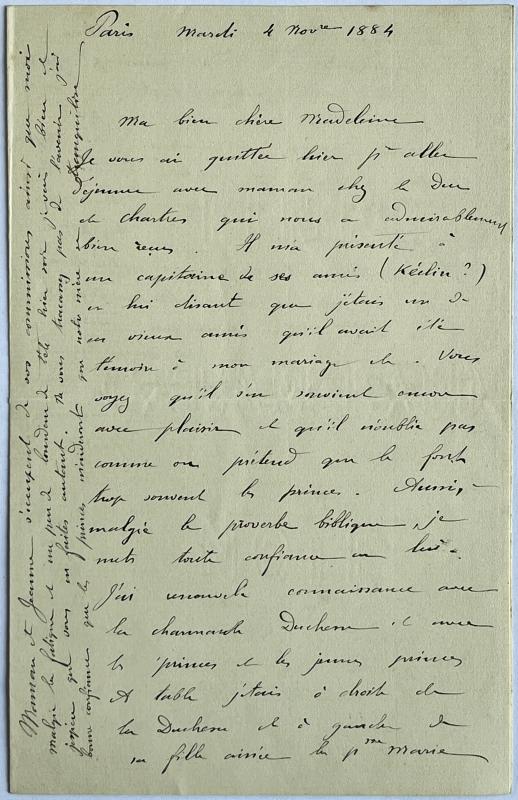 Paris Mardi 4 Novre 1884
Ma bien chère Madeleine
Je vous ai quittée hier pr aller
déjeuner avec maman chez le Duc
de Chartres qui nous a admirablement
bien reçus. Il m'a présenté à
un capitaine de ses amis (Kéclin?)
en lui disant que j'étais un de
ses vieux amis qu'il avait été
témoin à mon mariage etc. Vous
voyez qu'il s'en souvient encore
avec plaisir et qu'il n'oublie pas
comme on prétend que le font
trop souvent les princes. Aussi,
malgré le proverbe biblique, je
mets toute confiance en lui.
J'ai renouvelé connaissance avec
la charmante Duchesse et avec
les princes et les jeunes princes
A table j'étais à droite de
la Duchesse et à gauche de
sa fille aînée la psse Marie
Maman et Jeanne s'occupent de vos commissions ainsi que moi
malgré la fatigue et un peu de lourdeur de tête hier soir je vais bien et
j'espère que vous en faites autant. Ne vous tracassez pas de l'avenir j'ai
bonne confiance que les princes viendront que notre mère tranquilise